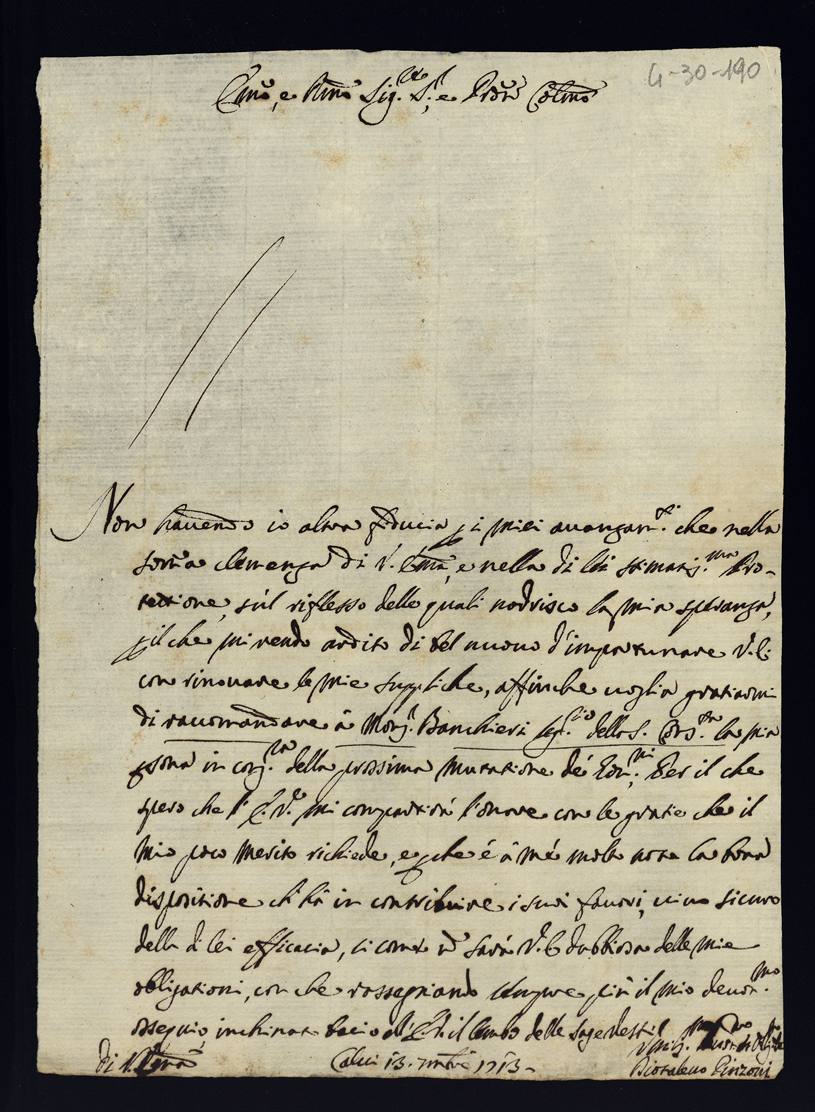 4-30-190
Emo, e Rmo Sig.re S., e Prone Colmo
Non havendo io altra fiducia p i miei avanzam.ti che nella
som̃a clemenza di V. Em̃a, e nella di lei stimatis.ma Pro-
tettione, sul riflesso delle quali nodrisco la mia speranza,
p il che mi rendo ardito di bel nuovo d'importunare V. E.
con rinovare le mie suppliche, affinche voglia gratiarmi
di racomandare à Mons.r Banchieri seg.rio della S. Cons.ta la mia
psona in cong.ra della prossima mutatione de Gov.ni Per il che
spero che l' E. V. mi compartirà l'onore con le gratie che il
mio poco merito richiede, e pche é à mé molto nota la bona
dispositione ch' hà in contribuire i suoi favori, vivo sicuro
della di lei efficacia, si come ñ sarà V. E. dubbiosa delle mie
obligationi, con che rassegnando sempre più il mio devot.mo
ossequio, inchinato bacio all' E. V. il lembo delle sagre vesti
Di V. Em̃a
Calvi 13. 1713